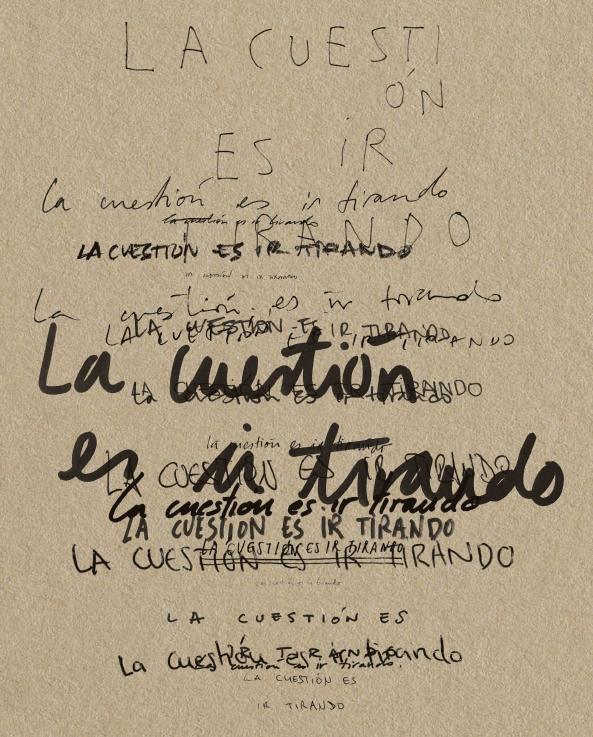 LA CUESTI
ÓN
ES IR
La cuestión es ir tirando
la cuestión es ir tirando
TIRANDO
LA CUESTIÓN ES IR TIRANDO
LA CUESTIÓN ES IR TIRANDO
La cuestión es ir tirando
LA CUESTIÓN ES IR TIRANDO
LA CUESTIÓN ES IR TIRANDO
La cuestión
LA CUESTIÓN ES IR TIRANDO
La cuestión es ir tirando
la cuestión es ir tirando
es ir tirando
LA CUESTIÓN ES IR TIRANDO
La cuestion es ir tirando
LA CUESTION ES IR TIRANDO
LA CUESTIÓN ES IR TIRANDO
LA CUESTIÓN ES IR TIRANDO
LA CUESTIÓN ES
IR TIRANDO
La cuestión es ir tirando
la cuestión es ir tirando.
LA CUESTIÓN ES
IR TIRANDO